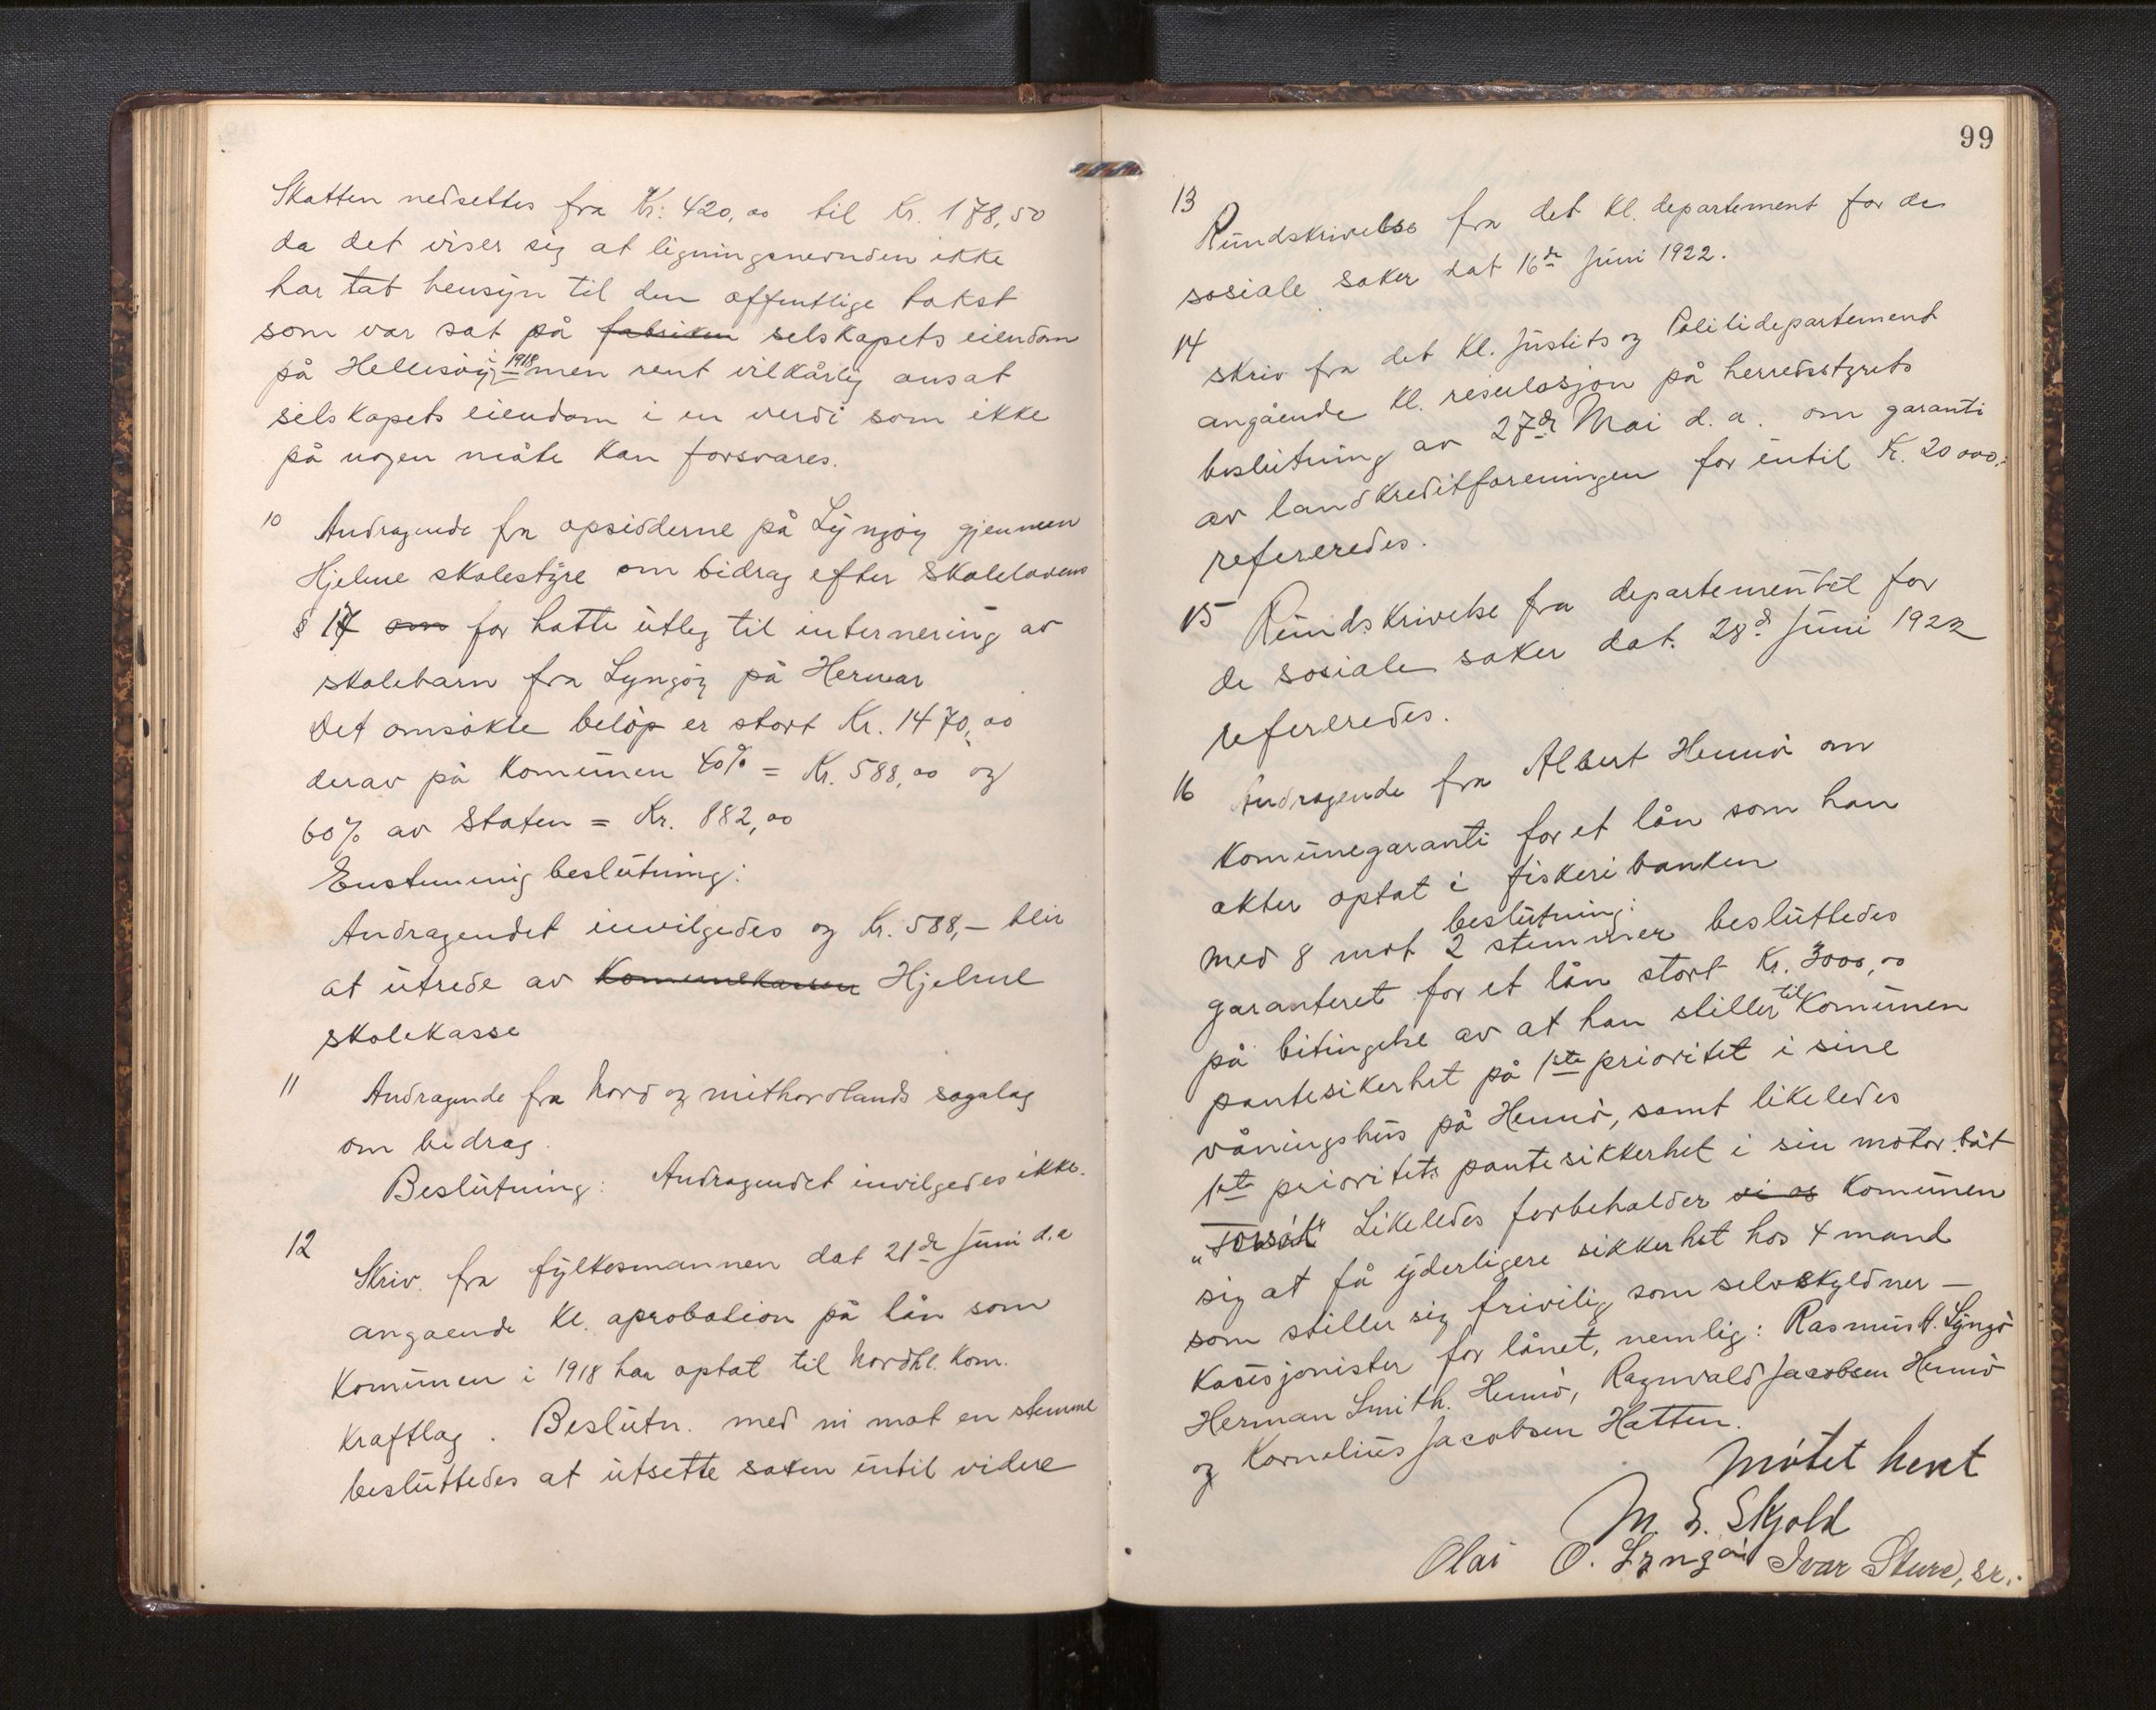 Skatten nedsettes fra Kr: 420,00 til Kr. 178,50
da det viser sig at ligningsnevnden ikke
har tat hensyn til den offentlige takst
som var sat på fabriken selskapets eiendom
på Hellesöy i 1918 men rent vilkårlig ansat
selskapets eiendom i en verdi som ikke
på nogen måte kan forsvares.
10 Andragende fra opsidderne på Lyngöy gjennem
Hjelme skolestyre om bidrag efter skolelovens
§ 17 om for hatte utleg til internering av
skolebarn fra Lyngöy på Hernar
Det omsökte belöp er stort Kr. 1470,00
derav på Komunen 40% = Kr. 588,00 og
60% av Staten = Kr. 882,00
Enstemmig beslutning:
Andragendet invilgedes og Kr. 588,— blir
at utrede av Komunekassen Hjelme
skolekasse
11 Andragende fra Nord og mithordlands sogalag
om bidrag.
Beslutning: Andragendet invilgedes ikke.
12
Skriv. fra fylkesmannen dat 21de Juni d.a
angaende Kl. aprobation på lån som
Komunen i 1918 har optat til Nordhl. Kom.
Kraftlag. Beslutn. med ni mot en stemme
besluttedes at utsette saken intil videre
99
13
Rundskrivelse fra det Kl. departement for de
sosiale saker dat 16de Juni 1922.
14
skriv fra det Kl. Justits og Politidepartement
angående Kl. resulosjon på herredsstyrets
beslutning av 27de Mai d.a. om garanti
av landkreditforeningen for intil Kr. 20000,-
refereredes.
15 Rundskrivelse fra departementet for
de sosiale saker dat. 28de Juni 1922
refereredes.
16 Andragende fra Albert Hennö om
Komunegaranti for et lån som han
akter optat i fiskeribanken
beslutning:
Med 8 mot 2 stemmer besluttedes
garanteret for et lån stort Kr. 3000,00
på bitingelse av at han stiller til Komunen
pantesikerhet på 1ste prioritet i sine
våningshus på Hennö, samt likeledes
1ste prioritets pantesikkerhet i sin motorbåt
" " Likeledes forbeholder vi os Komunen
sig at få yderligere sikkerhet hos 4 mand
som stiller sig frivilig som selvskyldner –
Kausjonister for lånet, nemlig: Rasmus A. Lyngö
Herman Smith. Hennö, Ragnvald Jacobsen Hennö
og Kornelius Jacobsen Hatten.
Mötet hevt
M. S. Skjold
Olai O. Lyngöi Ivar Sture, sr.